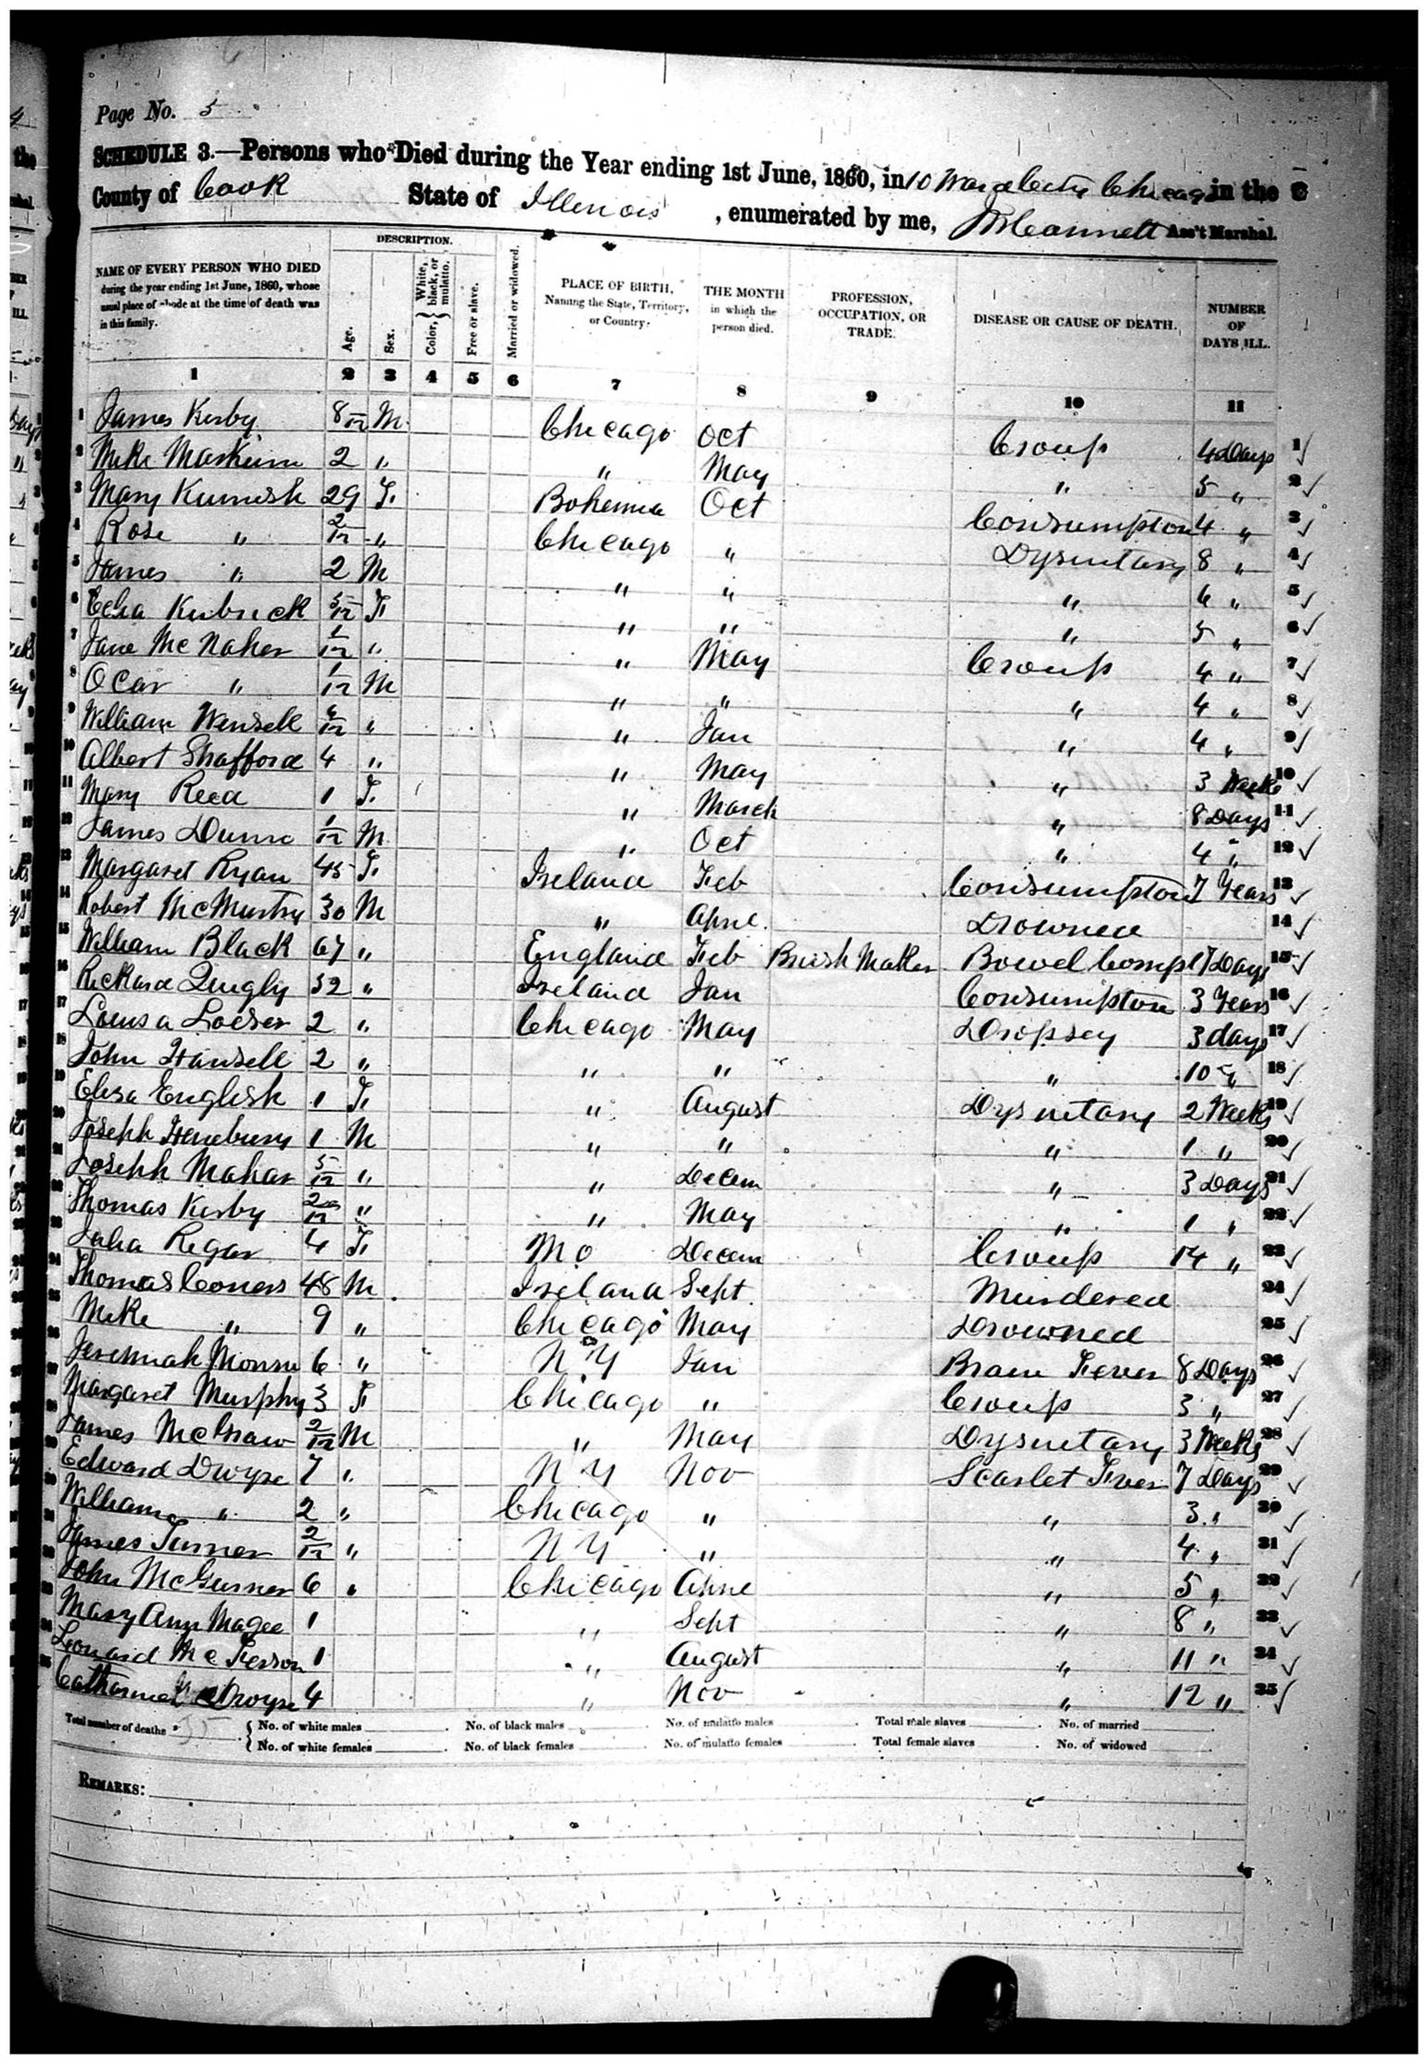 Page No. 5
SCHEDULE 3.—Persons who Died during the Year ending 1st June, 1860, in 10 Ward City Chicago in the
County of Cook State of Illinois, enumerated by me, Ass't Marshal.
DESCRIPTION.
NAME OF EVERY PERSON WHO DIED during the year ending 1st June, 1860, whose usual place of abode at the time of death was in this family.
Age.
Sex.
Color, { White, black, or mulatto.
Free or slave.
Married or widowed.
PLACE OF BIRTH, Naming the State, Territory, or Country.
THE MONTH in which the person died.
PROFESSION, OCCUPATION, OR TRADE.
DISEASE OR CAUSE OF DEATH.
NUMBER OF DAYS ILL.
1 2 3 4 5 6 7 8 9 10 11
1 James Kirby 8/12 M Chicago Oct Croup 4 Days 1
2 Mike 2 " " May " 5 " 2
3 Mary 29 F Bohemia Oct Consumption 4 " 3
4 Rose " 2/12 " Chicago " Dysentary 8 " 4
5 James " 2 M " " " 6 " 5
6 Kubrick 5/12 F " " " 5 " 6
7 Jane McNaher 1/12 " " May Croup 4 " 7
8 Ocar " 1/12 M " " " 4 " 8
9 William Wensell 6/12 " " Jan " 4 " 9
10 Albert Shafford 4 " " May " 3 Weeks 10
11 Mary Reed 1 F " March " 8 Days 11
12 James Dunn 1/12 M " Oct " 4 " 12
13 Margaret Ryan 45 F Ireland Feb Consumption 7 Years 13
14 Robert McMurtry 30 M " April Drowned 14
15 William Black 67 " England Feb Brush Maker Bowel Compl 17 Days 15
16 Richard Quigly 32 " Ireland Jan Consumption 3 Years 16
17 Louisa Loeser 2 " Chicago May Dropsey 3 days 17
18 John Hansell 2 " " " " 10 " 18
19 Eliza English 1 F " August Dysentary 2 Weeks 19
20 Joseph Henebury 1 M " " " 1 " 20
21 Joseph Mahar 5/12 " " Decem " 3 Days 21
22 Thomas Kirby 2/12 " " May " 1 " 22
23 Julia Regan 4 F Mo Decem Croup 14 " 23
24 Thomas Coners 48 M Ireland Sept Murdered 24
25 Mike " 9 " Chicago May Drowned 25
26 Jeremiah 6 " N Y Jan Brain Fever 8 Days 26
27 Margaret Murphy 3 F Chicago " Croup 3 " 27
28 James McGraw 2/12 M " May Dysentary 3 Weeks 28
29 Edward Dwyre 7 " N Y Nov Scarlet Fever 7 Days 29
30 William " 2 " Chicago " " 3 " 30
31 James Turner 2/12 " N Y " " 4 " 31
32 John McGurner 6 " Chicago " 5 " 32
33 Mary Ann Magee 1 " Sept " 8 " 33
34 Leonard 1 " August " 11 " 34
35 Catharine 4 " Nov " 12 " 35
Total number of deaths 35 { No. of white males No. of black males No. of mulatto males Total male slaves No. of married
No. of white females No. of black females No. of mulatto females Total female slaves No. of widowed
REMARKS: